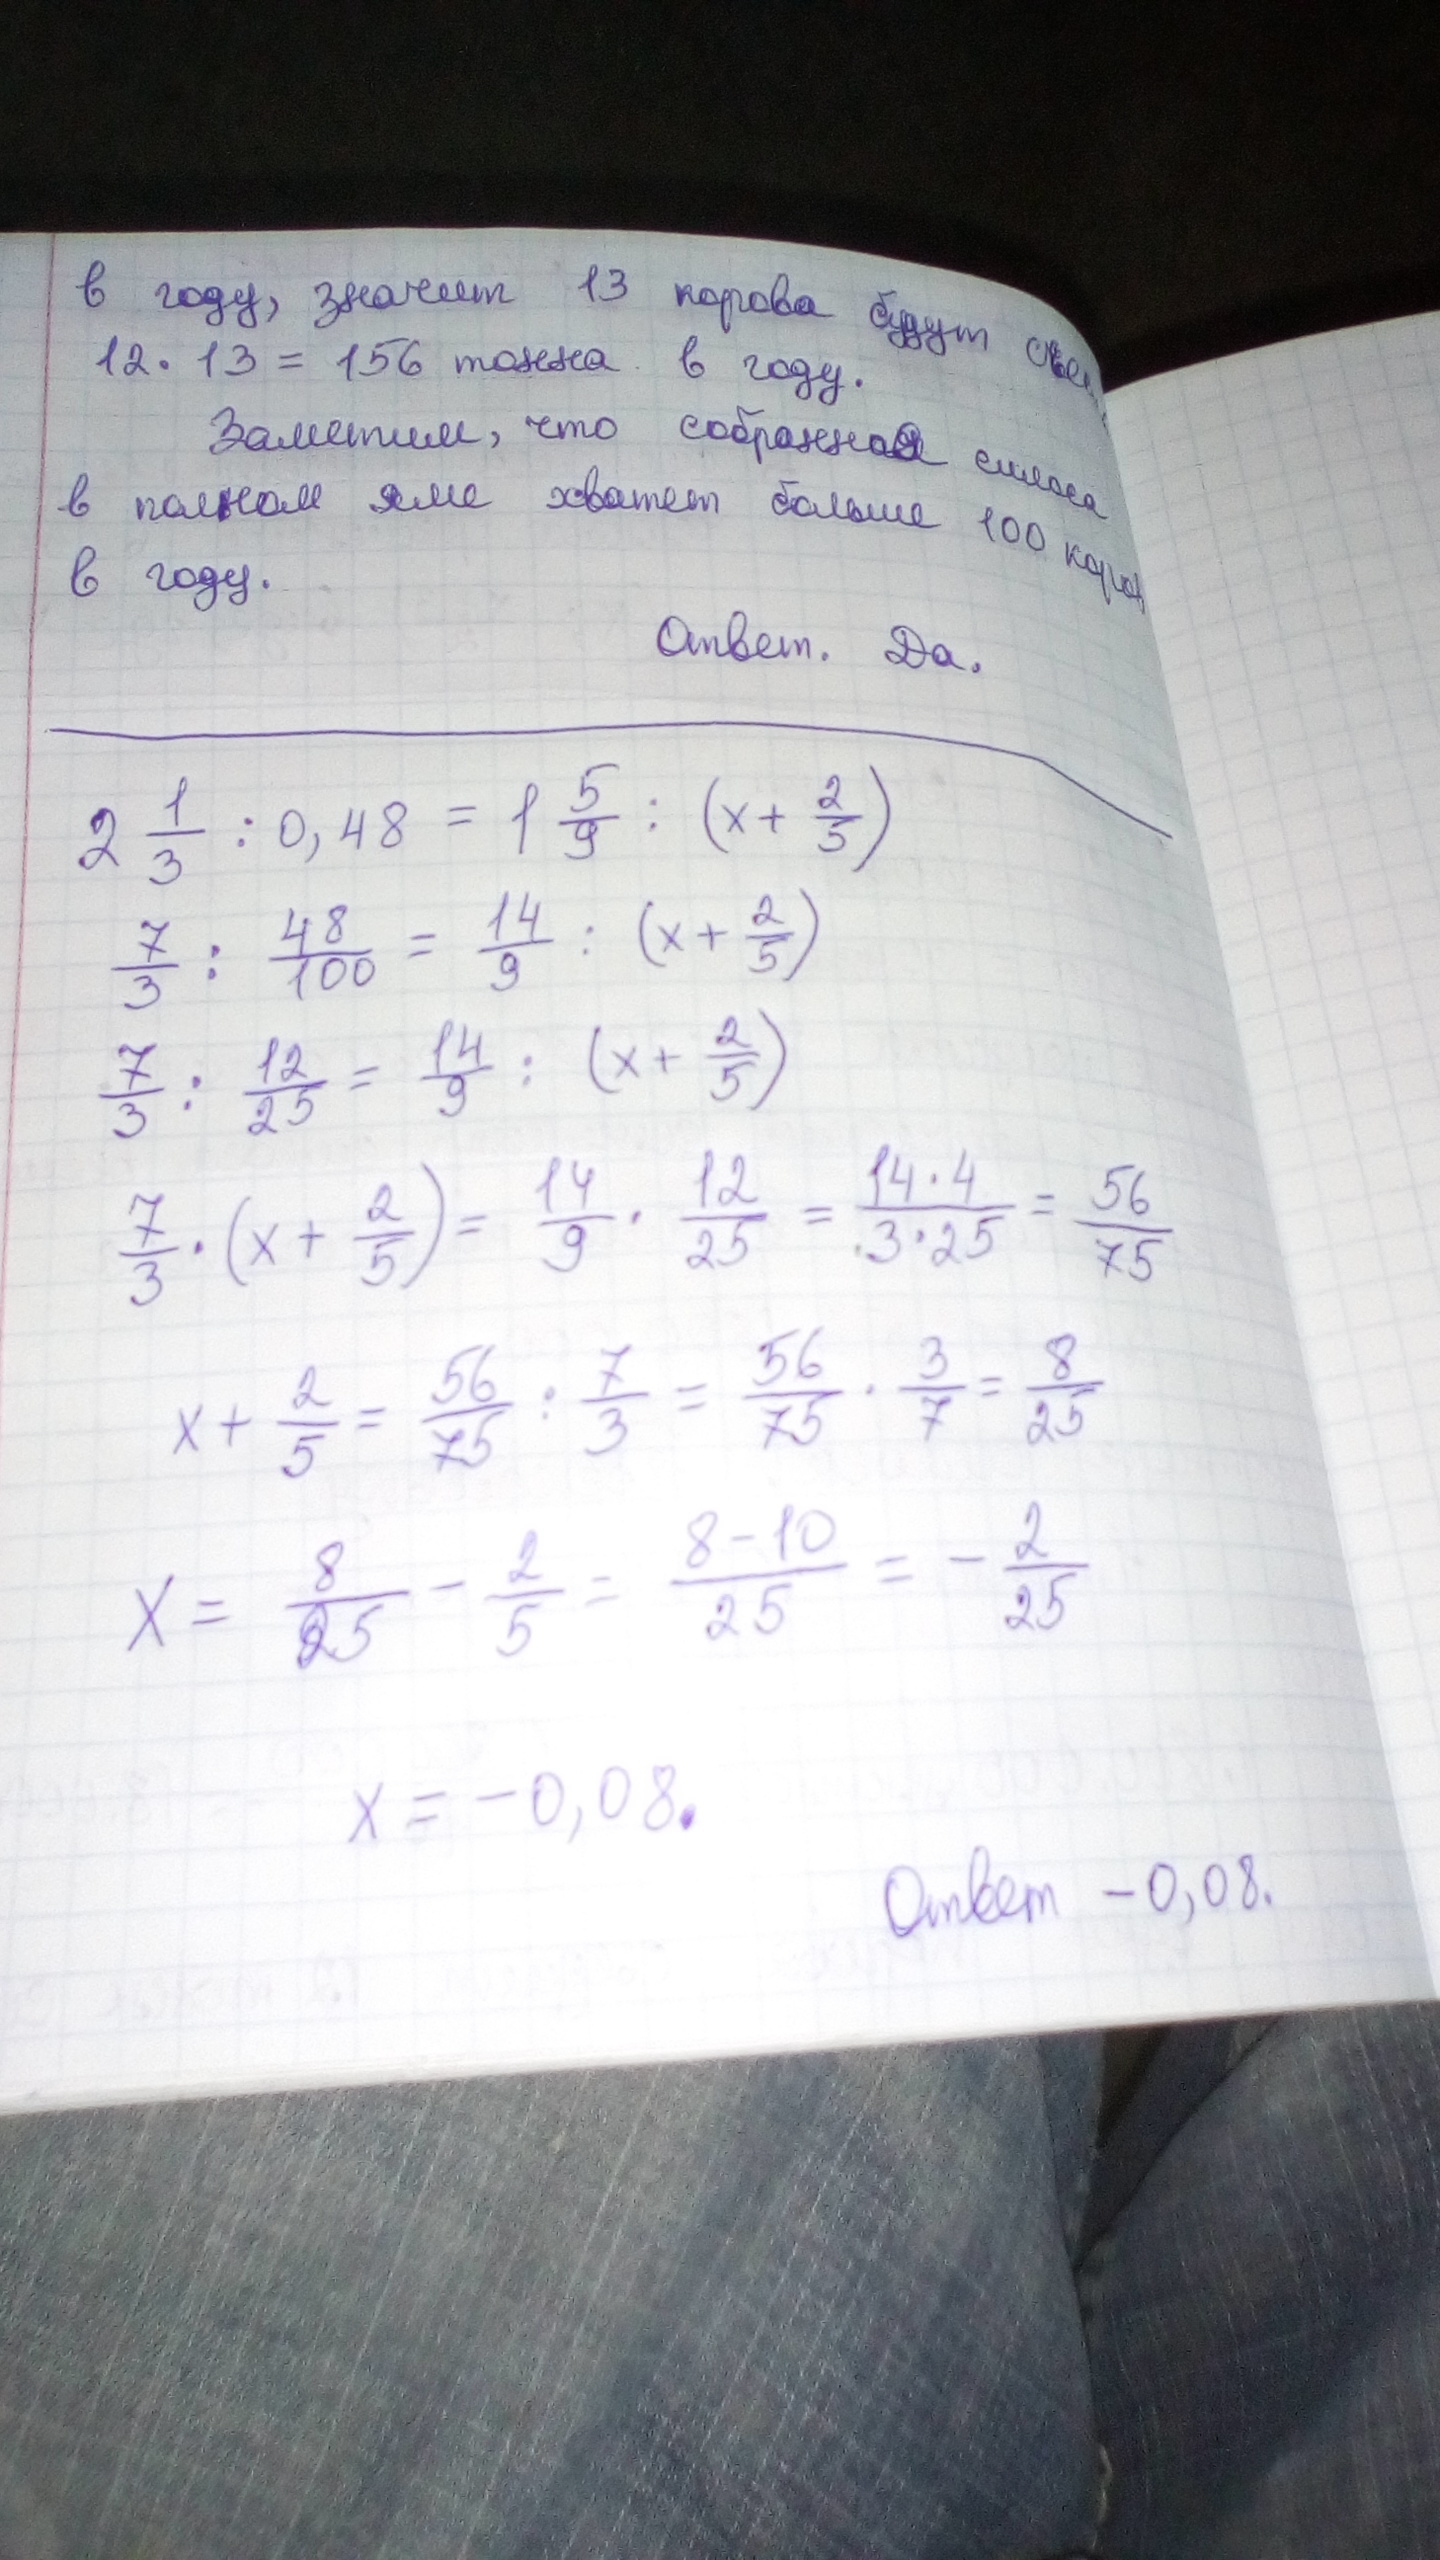 в году, значит 13 корова будут
12 · 13 = 156 тонна в году.
Заметим, что собранная силоса
в полном яме хватет больше 100 коров
в году.
Ответ. Да.
2 1/3 : 0,48 = 1 5/9 : (x + 2/5)
7/3 : 48/100 = 14/9 : (x + 2/5)
7/3 : 12/25 = 14/9 : (x + 2/5)
7/3 · (x + 2/5) = 14/9 · 12/25 = 14·4/3·25 = 56/75
x + 2/5 = 56/75 : 7/3 = 56/75 · 3/7 = 8/25
x = 8/25 - 2/5 = 8-10/25 = - 2/25
x = -0,08.
Ответ -0,08.